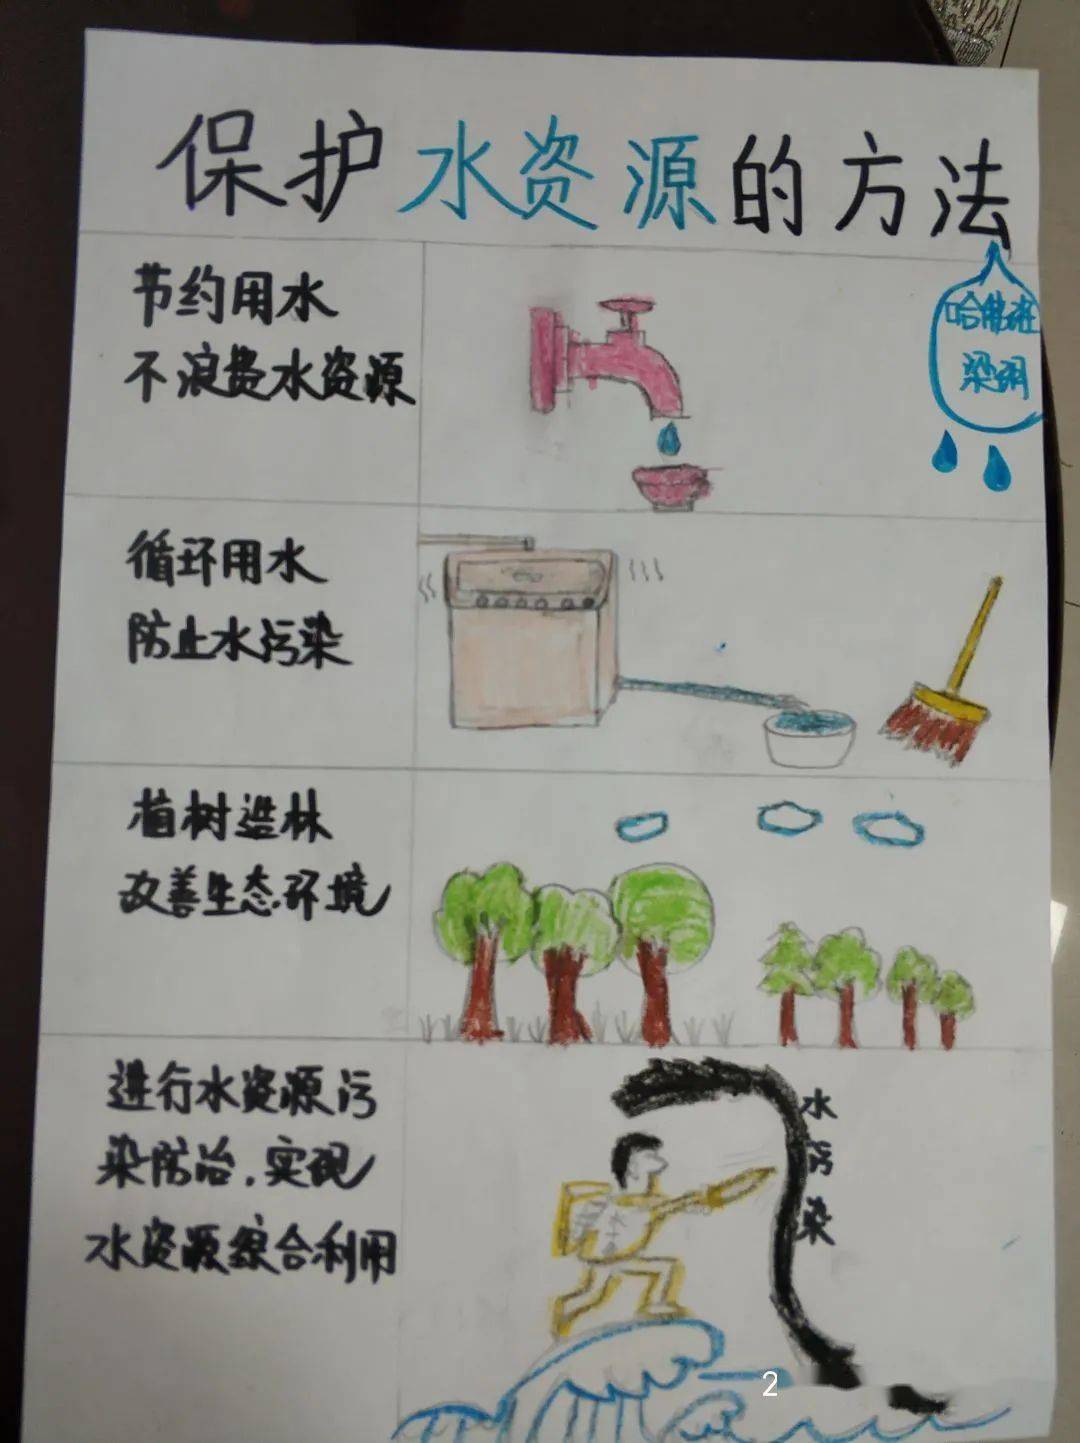 保护水资源的方法
哈佛班
梁玥
节约用水
不浪费水资源
循环用水
防止水污染
植树造林
改善生态环境
进行水资源污
染防治，实现
水资源综合利用
水污染
2